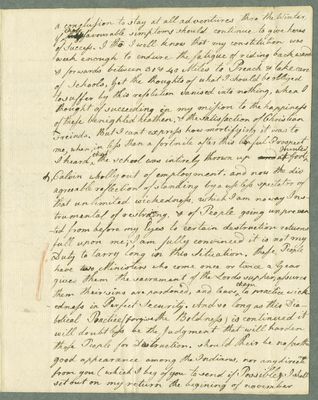 a conclusion to stay at all adventures thro the Winter,
favourable simptoms should continue, to give hopes
of Success. I tho I well knew that my constitution was
weak enough to endure the fatigue of riding backward
& forwards between 30 & 40 Miles to Preach & take care
of Schools, yet the thoughts of what I should be obliged
to suffer by this resolution vanised into nothing, when I
thought of succeeding in my mission to the happiness
of these benighted Heathen, & the Satisfaction of Christian
Freinds. But I cant express how mortifying it was to
me, when in less than a fortnite after this Prospect
I heard, the school was intirely thrown up
Calvin wholly out of employment. and now the dis
agreable reflection of standing by a useless spectator of
that unlimited wickedness, which I am no way Ins
trumental of restraing, & of People going unpreven
ted from before my Eyes to certain destruction returns
full upon me, I am fully convinced it is not my
Duty to tarry long in this situation. these People
have Ministers who come once or twice a Year
gives them the sacrament of the Lords supper, assures
them their sins are pardoned, and leaves to practice wick
edness in Perfect Security. And so long as this Dia
bolical Practice (forgive the Boldness) is continued it
will doubtless be the Judgment that will harden
these People for Destruction. should their be no farther
good appearance among the Indians, nor any direct
from you (which I beg of you to send if Possible) I shall
set out on my return the begining of november